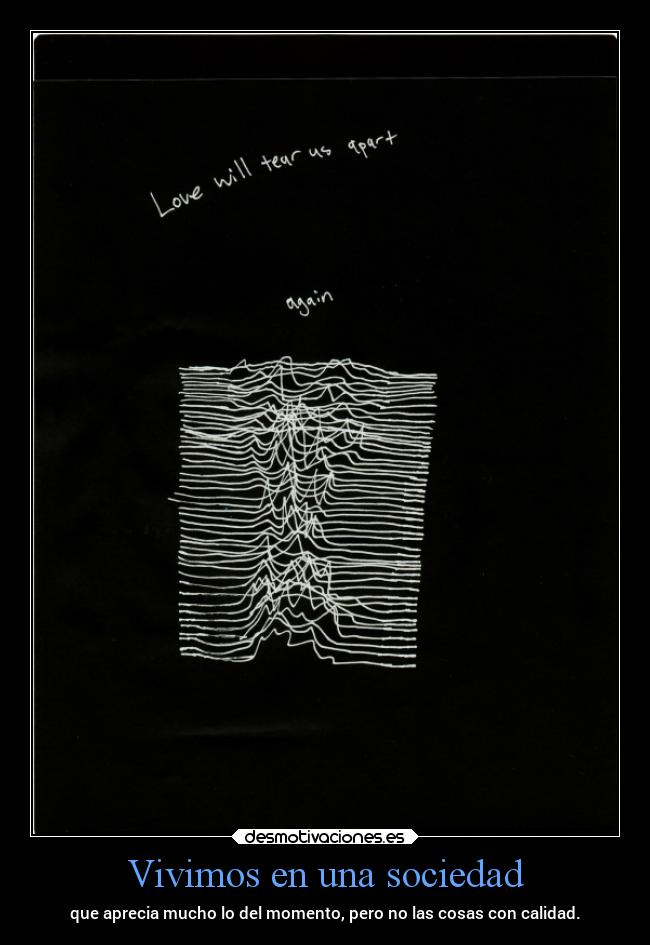 Love will tear us apart
again
desmotivaciones.es
Vivimos en una sociedad
que aprecia mucho lo del momento, pero no las cosas con calidad.